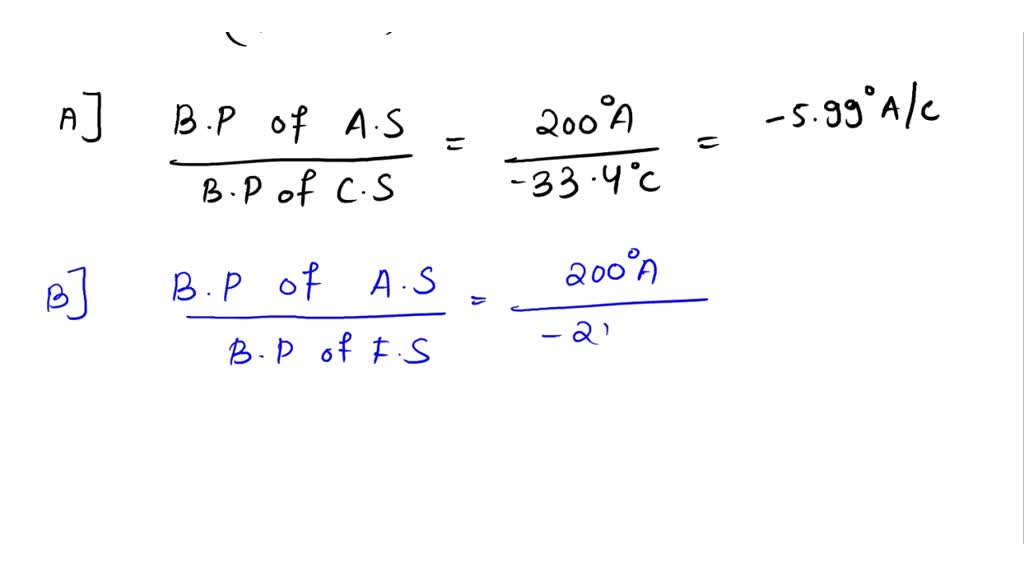 A] B.P of A.S / B.P of C.S = 200°A / -33.4°C = -5.99°A/C
B] B.P of A.S / B.P of F.S = 200°A / -2